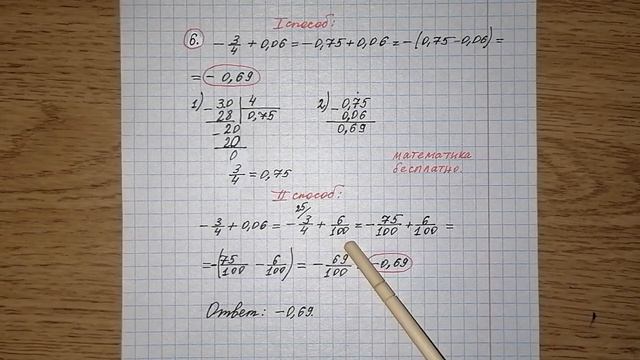 I способ:
6. - 3/4 + 0,06 = - 0,75 + 0,06 = - (0,75 - 0,06) =
= - 0,69
1) - 3,0 | 4
28 | 0,75
- 20
20
0
3/4 = 0,75
2) - 0,75
0,06
0,69
математика
бесплатно.
II способ:
- 3/4 + 0,06 = - 25/ 3/4 + 6/100 = - 75/100 + 6/100 =
= - (75/100 - 6/100) = - 69/100 = -0,69
Ответ: -0,69.